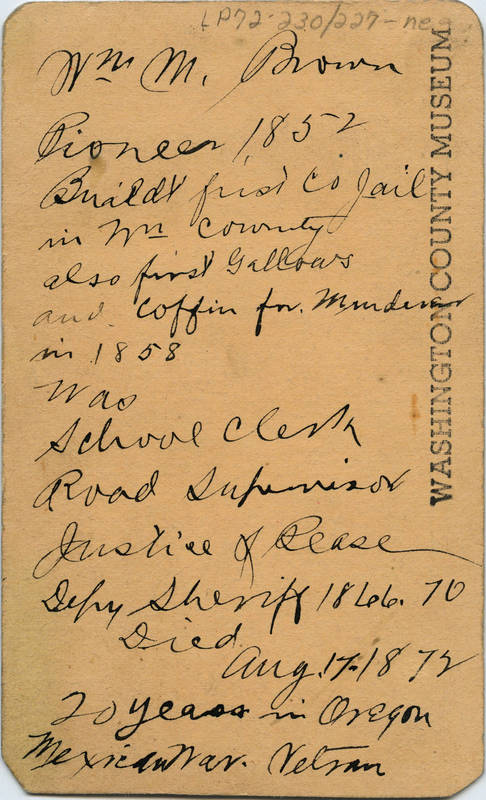 LP72-230/227-neg
Wm M. Brown
Pioneer 1852
Buildt first Co Jail
in Wn County
also first Gallows
and Coffin for Murderer
in 1858
Was
School Clerk
Road Supervisor
Justice of Pease
Depy Sheriff 1866.70
Died
Aug. 17. 1872
20 years in Oregon
Mexican War. Vetran
WASHINGTON COUNTY MUSEUM